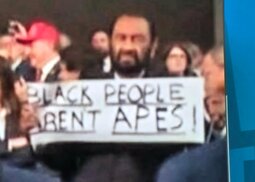 BLACK PEOPLE
ARENT APES!